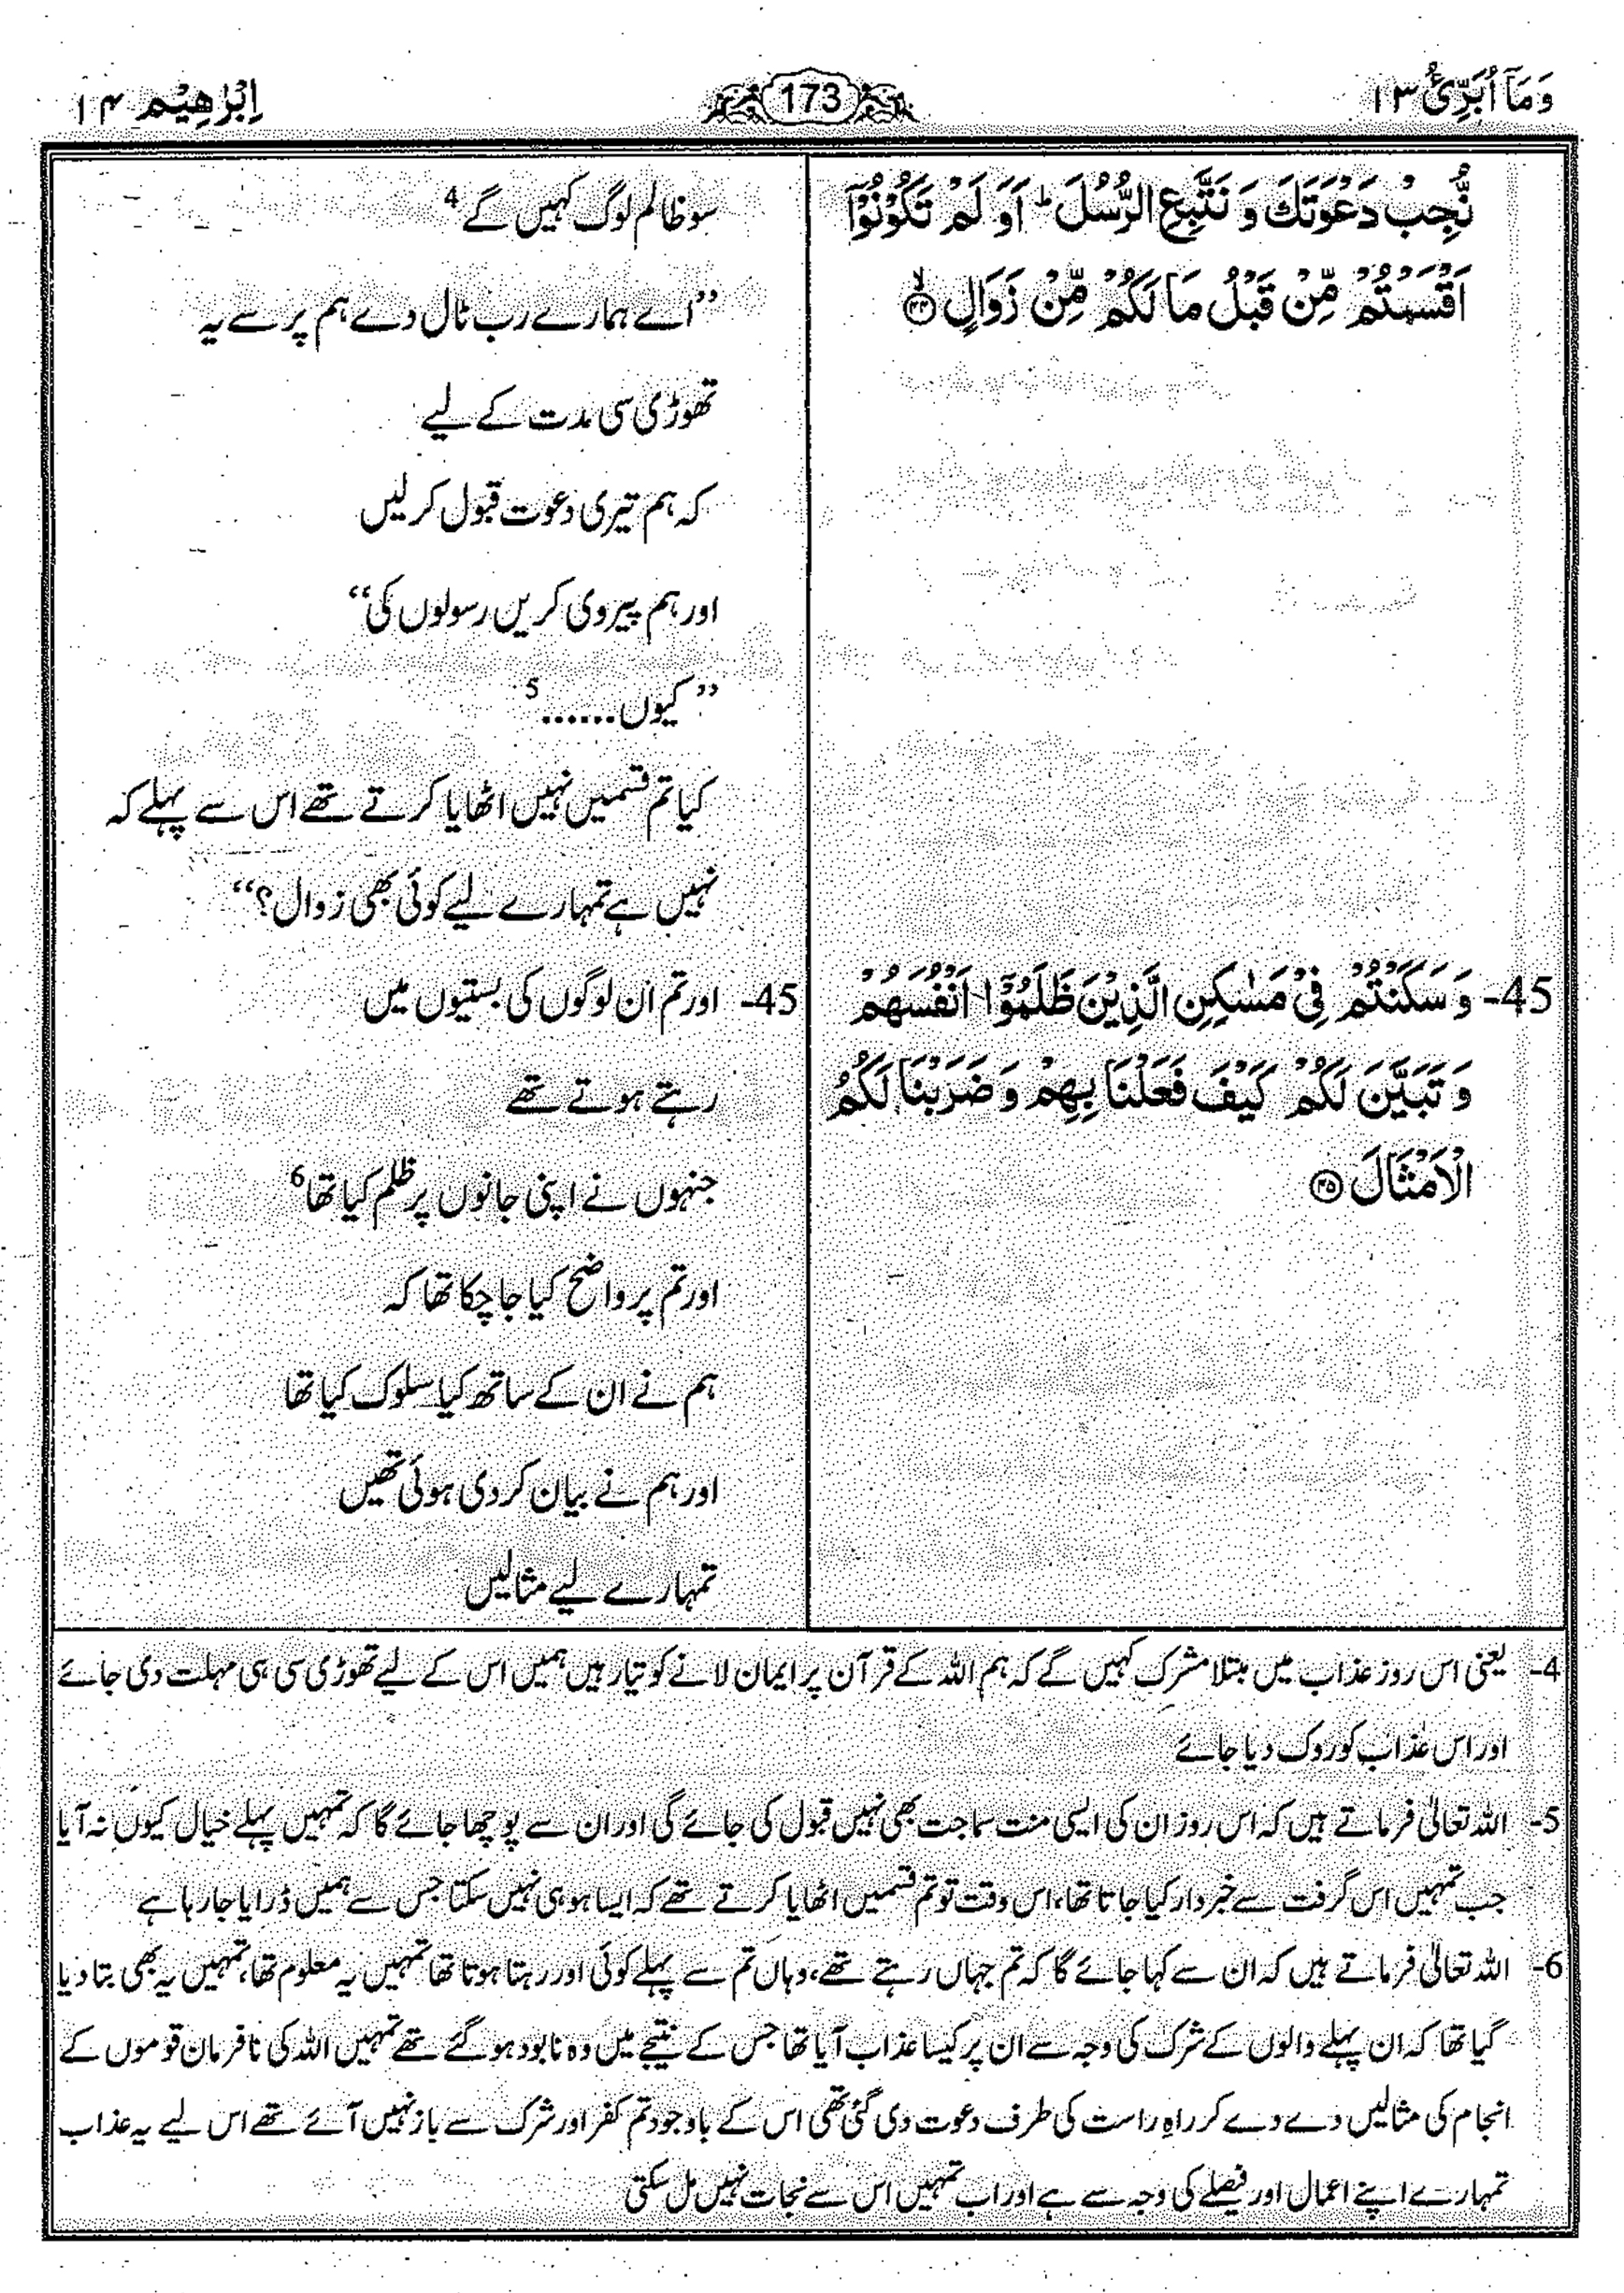 وَمَاۤ اُبَرِّئُ ۱۳
173
اِبْرٰهِیْم ۱۴
نُّجِبْ دَعْوَتَكَ وَ نَتَّبِعِ الرُّسُلَ ؕ اَوَ لَمْ تَكُوْنُوْۤا
اَقْسَمْتُمْ مِّنْ قَبْلُ مَا لَكُمْ مِّنْ زَوَالٍ ۙ﴿۴۴﴾
45- وَ سَكَنْتُمْ فِیْ مَسٰكِنِ الَّذِیْنَ ظَلَمُوْۤا اَنْفُسَهُمْ
وَ تَبَیَّنَ لَكُمْ كَیْفَ فَعَلْنَا بِهِمْ وَ ضَرَبْنَا لَكُمُ
الْاَمْثَالَ ﴿۴۵﴾
سو ظالم لوگ کہیں گے 4
”اے ہمارے رب ٹال دے ہم پر سے یہ
تھوڑی سی مدت کے لیے
کہ ہم تیری دعوت قبول کر لیں
اور ہم پیروی کریں رسولوں کی“
”کیوں...... 5
کیا تم قسمیں نہیں اٹھایا کرتے تھے اس سے پہلے کہ
نہیں ہے تمہارے لیے کوئی بھی زوال؟“
45- اور تم ان لوگوں کی بستیوں میں
رہتے ہوتے تھے
جنہوں نے اپنی جانوں پر ظلم کیا تھا 6
اور تم پر واضح کیا جا چکا تھا کہ
ہم نے ان کے ساتھ کیا سلوک کیا تھا
اور ہم نے بیان کر دی ہوئی تھیں
تمہارے لیے مثالیں
4- یعنی اس روز عذاب میں مبتلا مشرک کہیں گے کہ ہم اللہ کے قرآن پر ایمان لانے کو تیار ہیں ہمیں اس کے لیے تھوڑی سی ہی مہلت دی جائے
اور اس عذاب کو روک دیا جائے
5- اللہ تعالیٰ فرماتے ہیں کہ اس روز ان کی ایسی منت سماجت بھی نہیں قبول کی جائے گی اور ان سے پوچھا جائے گا کہ تمہیں پہلے خیال کیوں نہ آیا
جب تمہیں اس گرفت سے خبردار کیا جاتا تھا، اس وقت تو تم قسمیں اٹھایا کرتے تھے کہ ایسا ہو ہی نہیں سکتا جس سے ہمیں ڈرایا جا رہا ہے
6- اللہ تعالیٰ فرماتے ہیں کہ ان سے کہا جائے گا کہ تم جہاں رہتے تھے، وہاں تم سے پہلے کوئی اور رہتا ہوتا تھا تمہیں یہ معلوم تھا، تمہیں یہ بھی بتا دیا
گیا تھا کہ ان پہلے والوں کے شرک کی وجہ سے ان پر کیسا عذاب آیا تھا جس کے نتیجے میں وہ نابود ہو گئے تھے تمہیں اللہ کی نافرمان قوموں کے
انجام کی مثالیں دے دے کر راہِ راست کی طرف دعوت دی گئی تھی اس کے باوجود تم کفر اور شرک سے باز نہیں آئے تھے اس لیے یہ عذاب
تمہارے اپنے اعمال اور فیصلے کی وجہ سے ہے اور اب تمہیں اس سے نجات نہیں مل سکتی